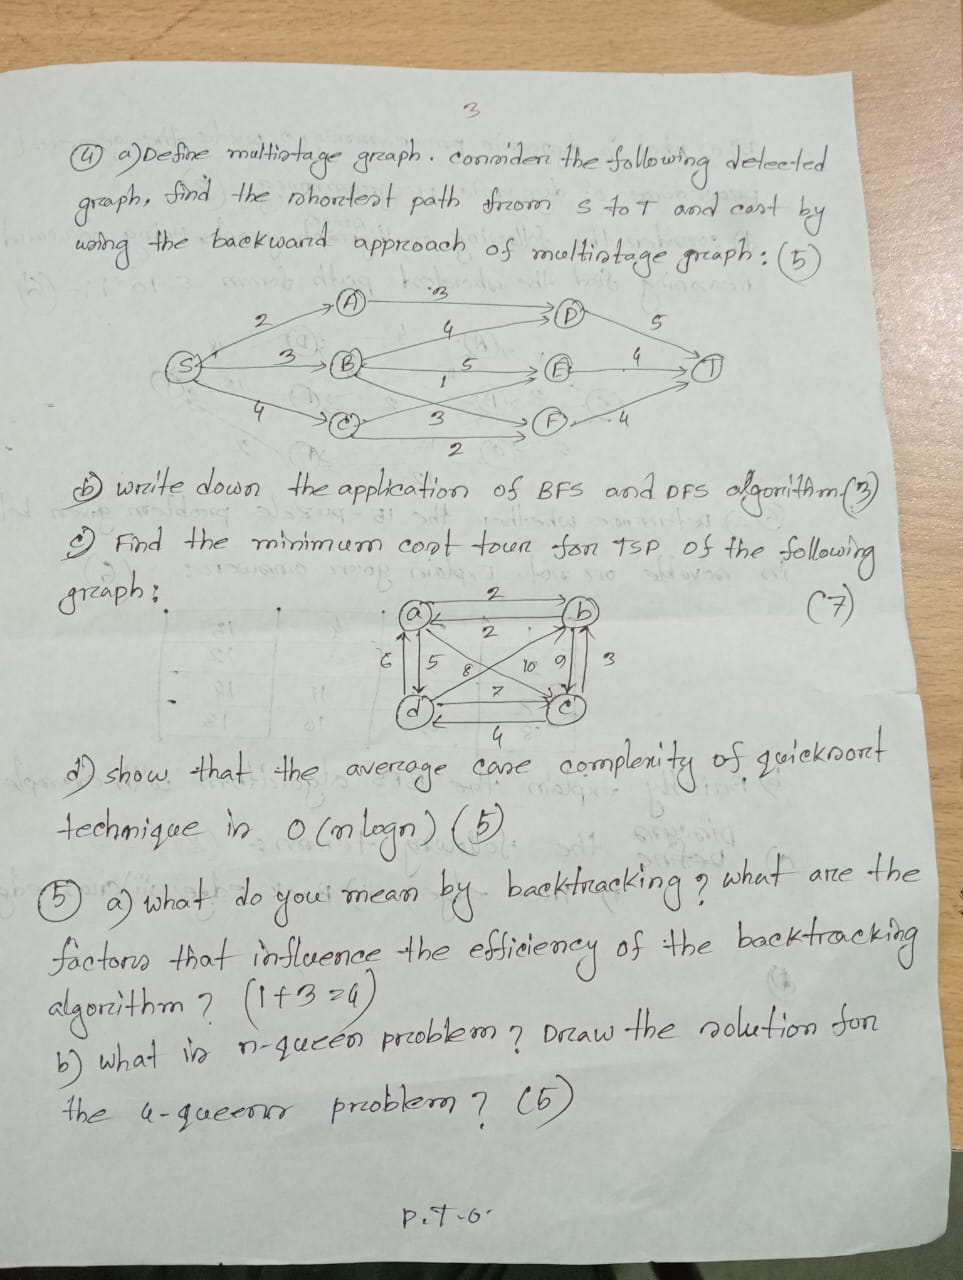 3
④ a) Define multistage graph. consider the following detected
graph, find the shortest path from s to T and cost by
using the backward approach of multistage graph: (5)
A 3 D
2 4 5
S 3 B 5 E 4 T
1
4 C 3 F 4
2
b) write down the application of BFS and DFS algorithm (3)
c) Find the minimum cost tour for TSP of the following
graph: (7)
a 2 b
2
6 5 8 10 9 3
7
d c
4
d) show that the average case complexity of quicksort
technique is O(n logn) (5)
⑤ a) what do you mean by backtracking? what are the
factors that influence the efficiency of the backtracking
algorithm? (1+3=4)
b) what is n-queen problem? Draw the solution for
the 4-queens problem? (5)
P.T.O.